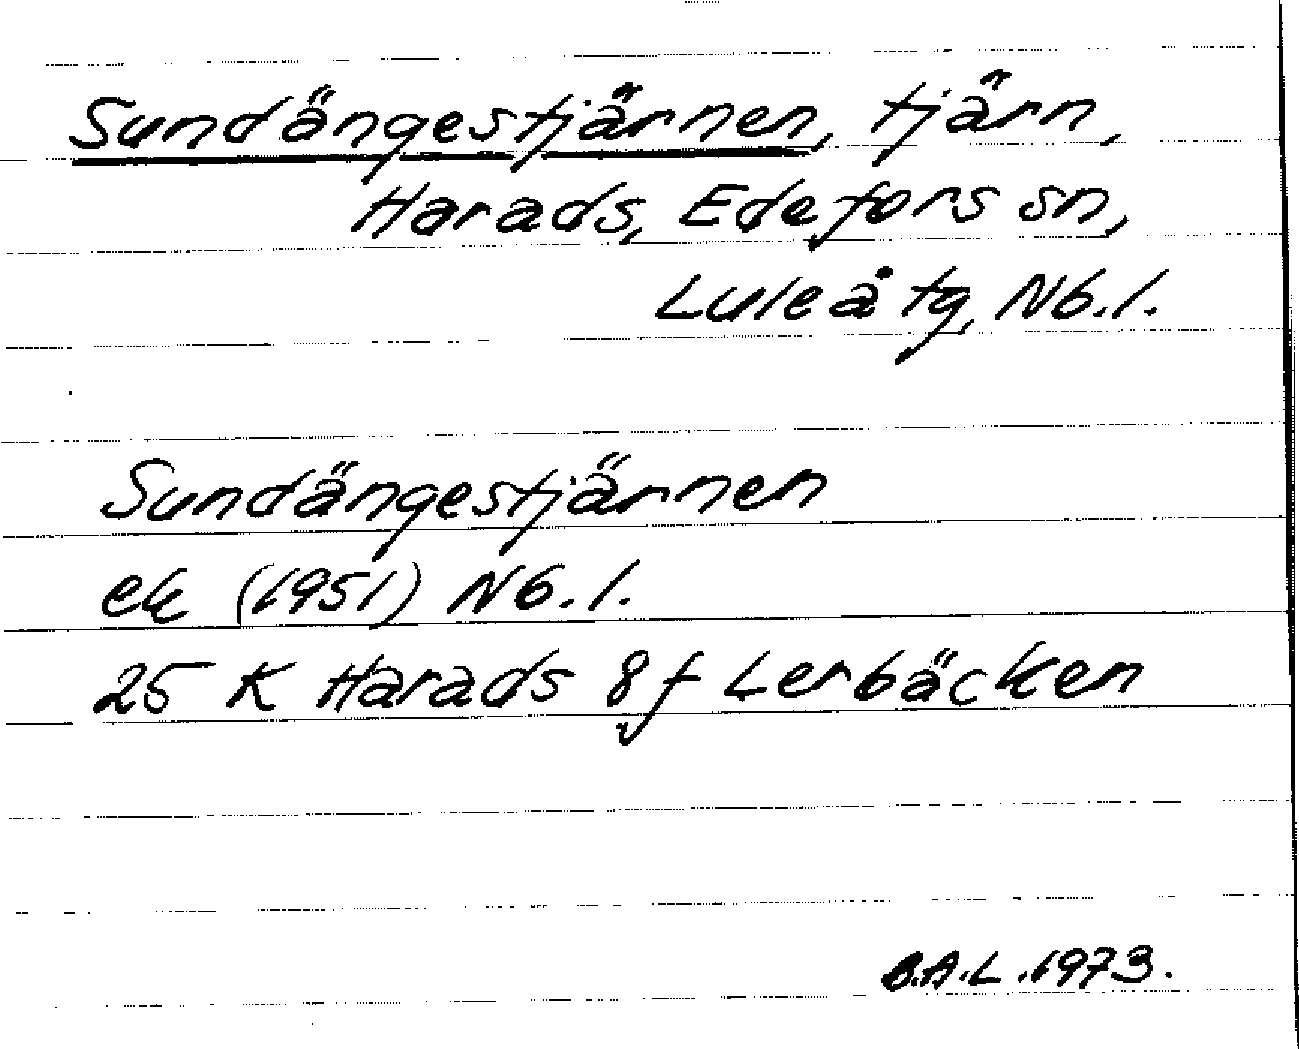 Sundängestjärnen, tjärn,
Harads, Edefors sn,
Luleå tg, Nb.l.
Sundängestjärnen
ek (1951) Nb.l.
25 K Harads 8f Lerbäcken
B.A.L. 1973.